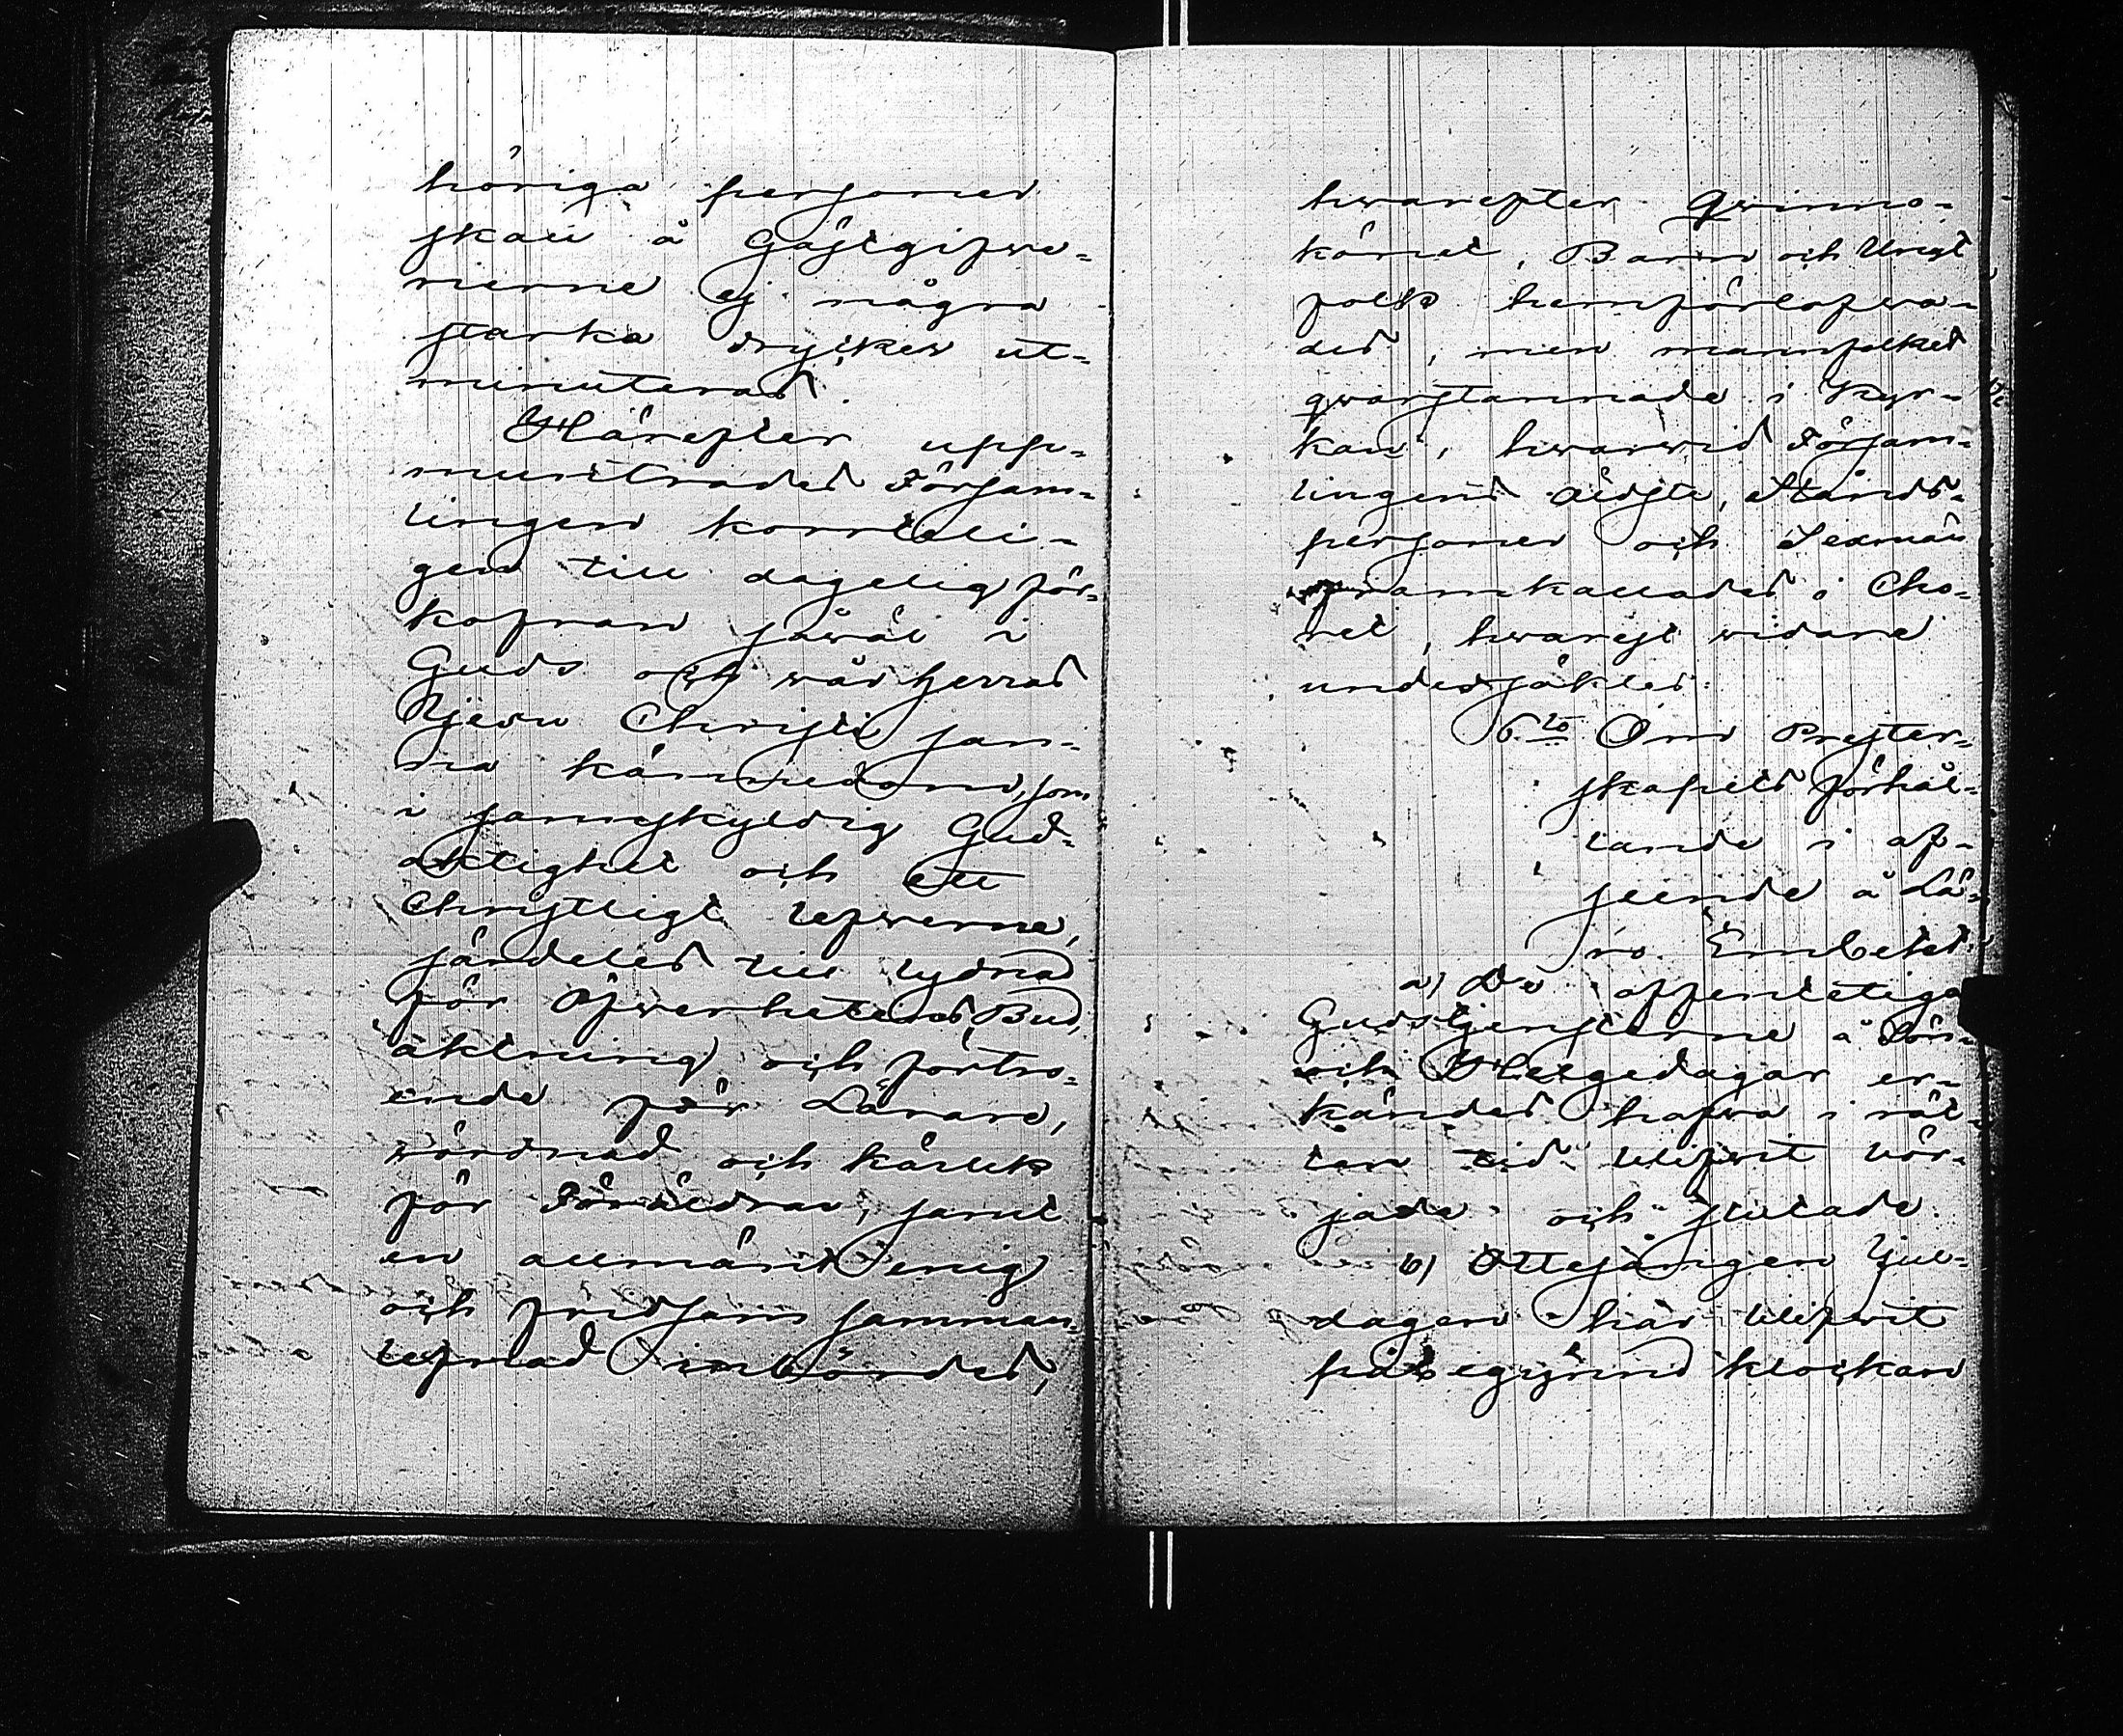 höriga personer
skall å Gästgifwe-
rierne ej några
starka drycker ut-
minuteras.
Härefter upp-
muntrades Försam-
lingen korrteli-
gen till dagelig för-
kofran såwäl i
Guds och wår Herras
Jesu Christi san-
na kännedom, som
i sannskyldig Gud-
aktighet och ett
Christligt lefwerne,
särdeles till lydna
för Öfwerhetens Bud,
aktning och förtro-
ende för Lärare,
wördnad och kärlek
för Föräldrar, samt
en allmänt enig
och fridsam samman-
lefnad inbördes,
hwarefter Qwinno-
könet, Barn och Ungt
folk hemförlofwa-
des, men mannfolket
qwarstannade i Kyr-
kan, hwarwid Försam-
lingens äldste, Stånds-
personer och Sexmän
framkallades i Cho-
ret, hwarest widare
undersöktes.
6:to Om Prester-
skapets förhål-
lande i af-
seende å Lä-
ro Embetet
a) De offenteliga
Gudstjensterne å Sön-
och Helgedagar er-
kändes hafwa i rät-
tan tid blifwit bör-
jade och slutade.
b) Ottesången Jul-
dagen har blifwit
påbegynnd klockan